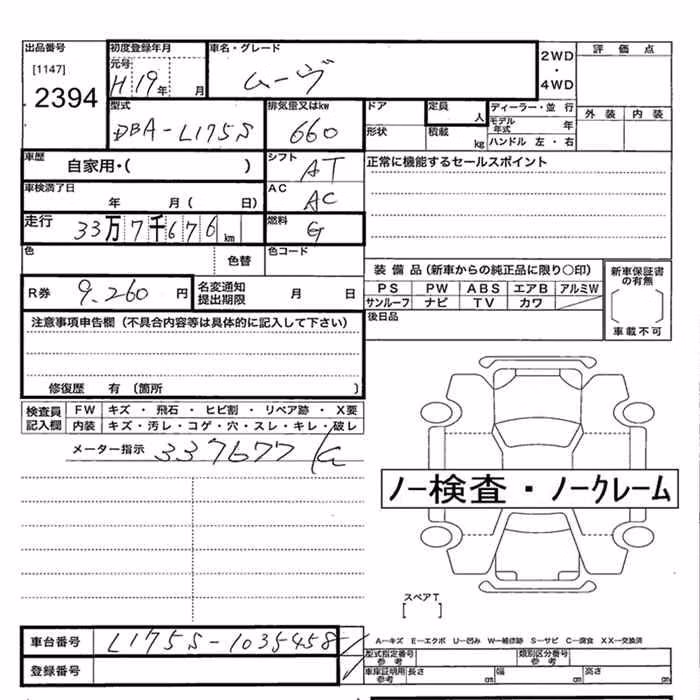 出品番号
[1147]
2394
初度登録年月
元号
H 19年 月
車名・グレード
ムーヴ
2WD
・
4WD
評価点
外装 内装
型式
DBA-L175S
排気量又はkw
660
ドア
形状
定員
人
積載
kg
ディーラー・並行
モデル年式 年
ハンドル 左・右
車歴
自家用・( )
シフト
AT
正常に機能するセールスポイント
車検満了日
年 月( 日)
AC
AC
走行
33万7千676km
燃料
G
色
色替
色コード
R券 9,260円
名変通知
提出期限 月 日
装備品(新車からの純正品に限り○印)
PS PW ABS エアB アルミW
サンルーフ ナビ TV カワ
後日品
新車保証書
の有無
[ ]
車載不可
注意事項申告欄(不具合内容等は具体的に記入して下さい)
修復歴 有〔箇所 〕
検査員
記入欄
FW キズ・飛石・ヒビ割・リペア跡・X要
内装 キズ・汚レ・コゲ・穴・スレ・キレ・破レ
メーター指示 337677 K
ノー検査・ノークレーム
スペアT
[ ]
A−キズ E−エクボ U−凹み W−補修跡 S−サビ C−腐食 XX−交換済
車台番号 L175S-1035458
登録番号
型式指定番号
参考
類別区分番号
参考
車庫証明用
参考
長さ cm 幅 cm 高さ cm